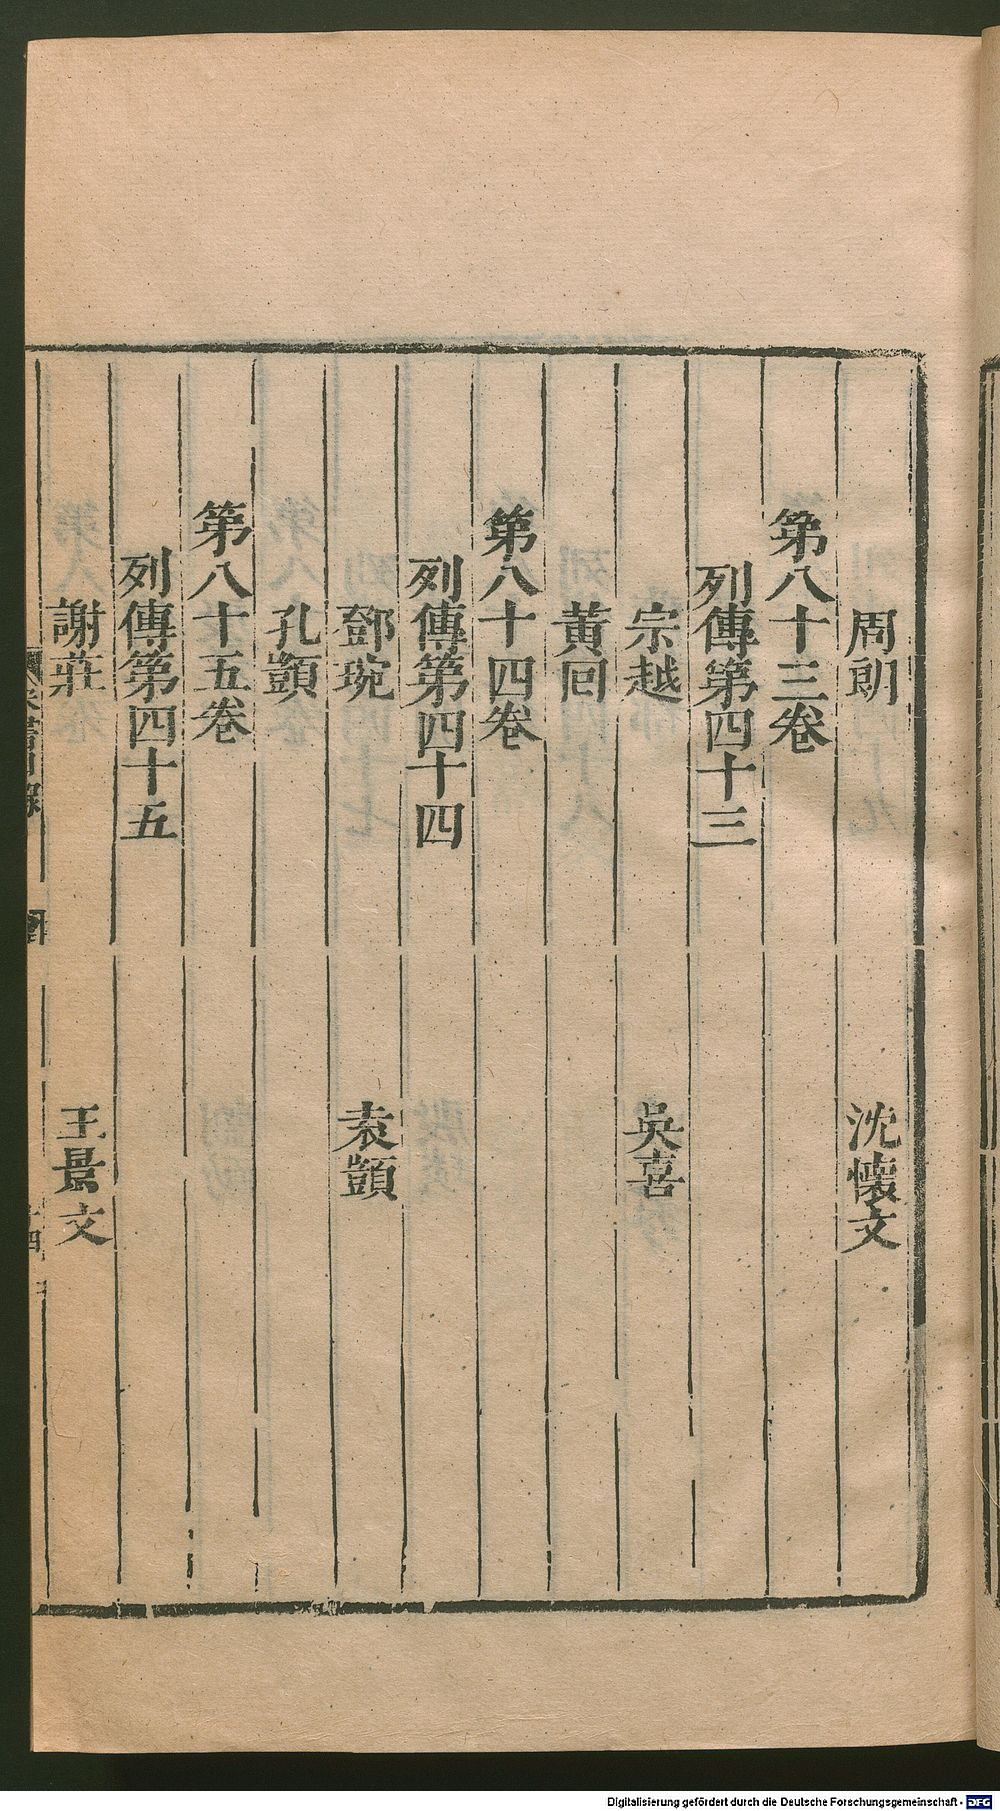 周朗　沈懷文
第八十三卷
列傳第四十三
宗越　吳喜
黃回
第八十四卷
列傳第四十四
鄧琬　袁顗
孔顗
第八十五卷
列傳第四十五
謝莊　王景文
Digitalisierung gefördert durch die Deutsche Forschungsgemeinschaft - DFG